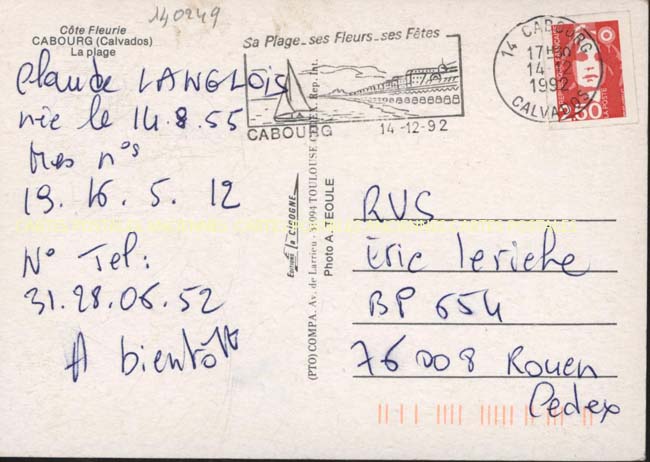 140249
Côte Fleurie
CABOURG (Calvados)
La plage
Claude LANGLOIS
née le 14.8.55
mes nos
19. 16. 5. 12
N° Tel:
31.28.06.52
A bientôt
Sa Plage_ses Fleurs_ses Fêtes
CABOURG 14-12-92
14 CABOURG
17H30
14-12
1992
CALVADOS
2,50
LA POSTE
Editions la CIGOGNE
(PTO) COMPA. Av. de Larrieu - 31094 TOULOUSE CEDEX. Rep. Int.
Photo A. TEOULE
RVS
Eric Leriche
BP 654
76008 Rouen
Cedex